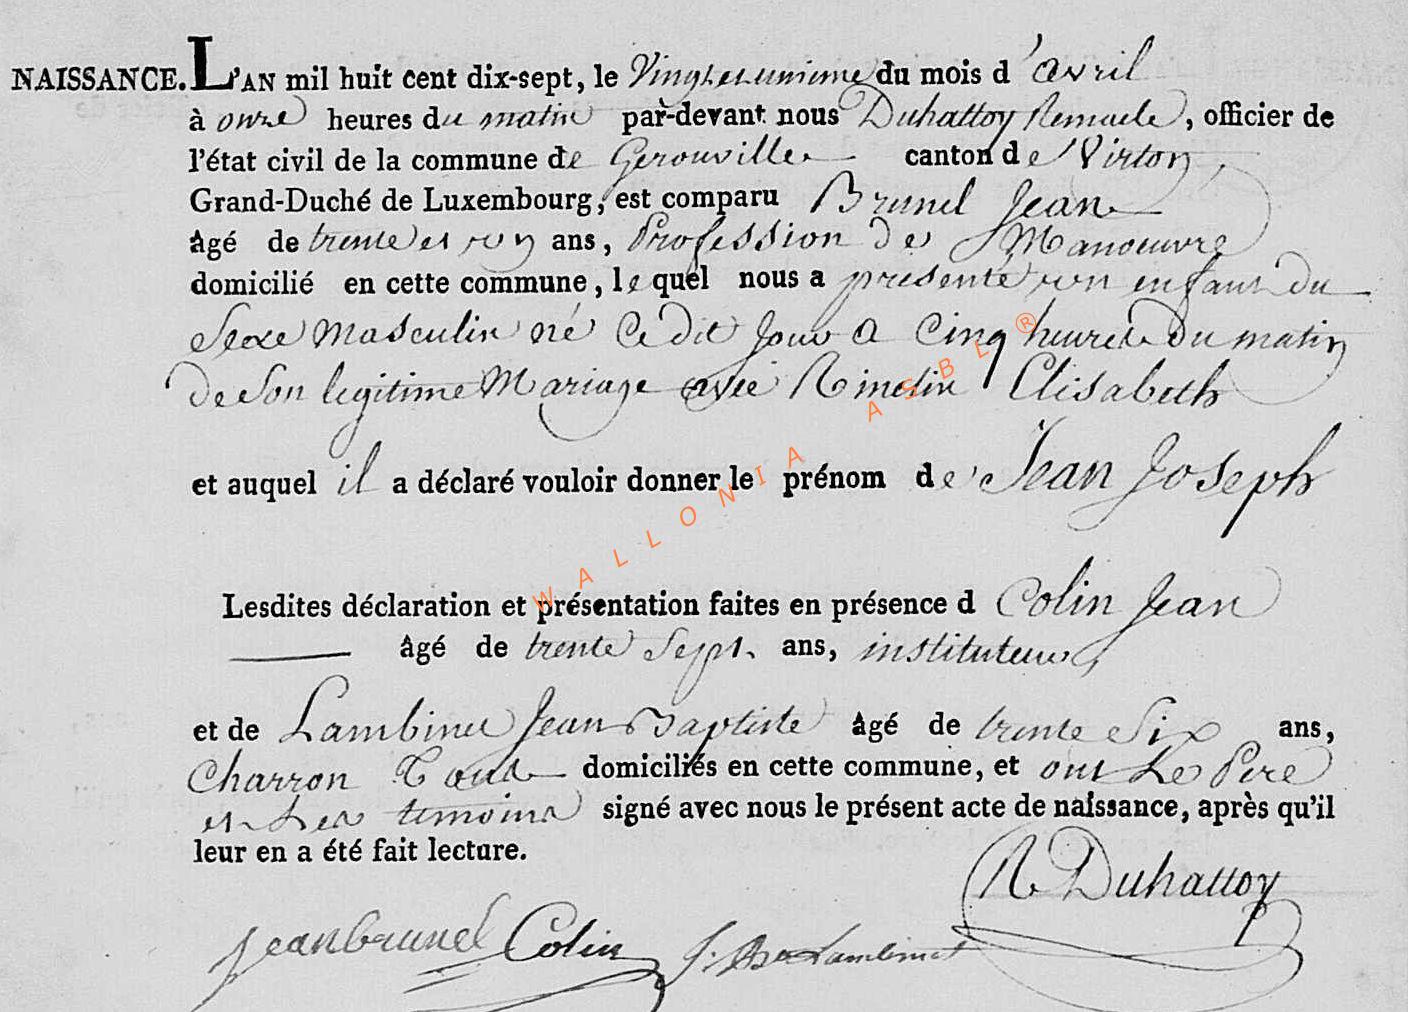 NAISSANCE. L'AN mil huit cent dix-sept, le Vingt et unieme du mois d'avril
à onze heures du matin par-devant nous Duhattoy Remacle, officier de
l'état civil de la commune de Gerouville canton de Virton,
Grand-Duché de Luxembourg, est comparu Brunel Jean
âgé de trente et un ans, Profession de Manoeuvre
domicilié en cette commune, le quel nous a présenté un enfant du
Sexe masculin né Ce dit Jour a Cinq heures Du matin
de Son legitime Mariage avec Elisabeth
et auquel il a déclaré vouloir donner le prénom de Jean Joseph
Lesdites déclaration et présentation faites en présence d Colin Jean
âgé de trente Sept ans, instituteur,
et de Lambinet Jean Baptiste âgé de trente Six ans,
Charron Tous domiciliés en cette commune, et ont Le Pere
et Les temoins signé avec nous le présent acte de naissance, après qu'il
leur en a été fait lecture.
R Duhattoy
Jean brunel Colin J. Bte Lambinet
WALLONIA ASBL ®